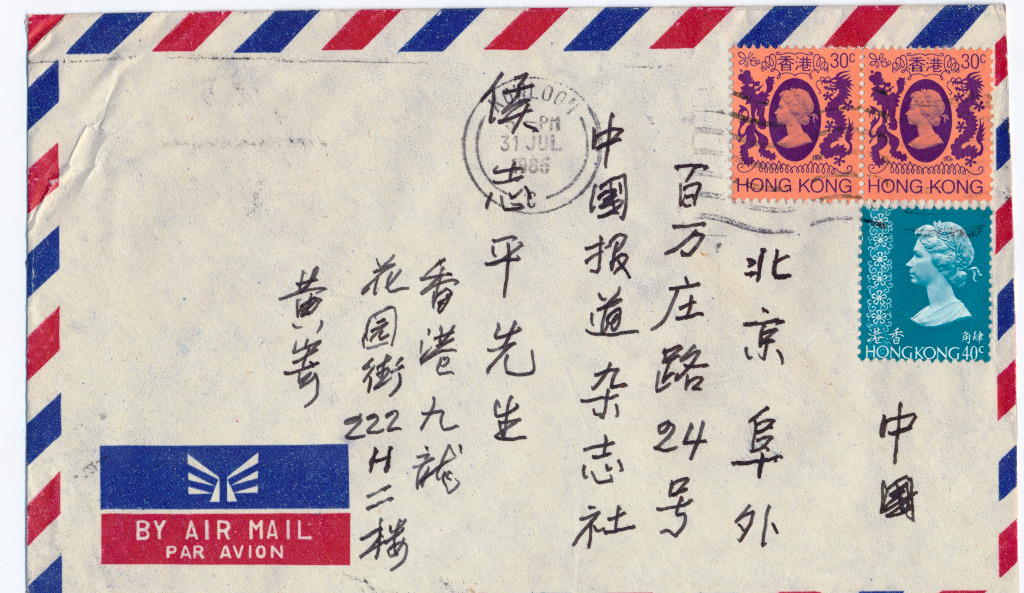 香港 30c
HONG KONG
香港 30c
HONG KONG
香港 肆角
HONG KONG 40c
KOWLOON
PM
31 JUL
1986
中國
北京阜外
百万庄路24号
中國报道杂志社
侯志平先生
香港九龙
花园街222H二楼
黄
BY AIR MAIL
PAR AVION